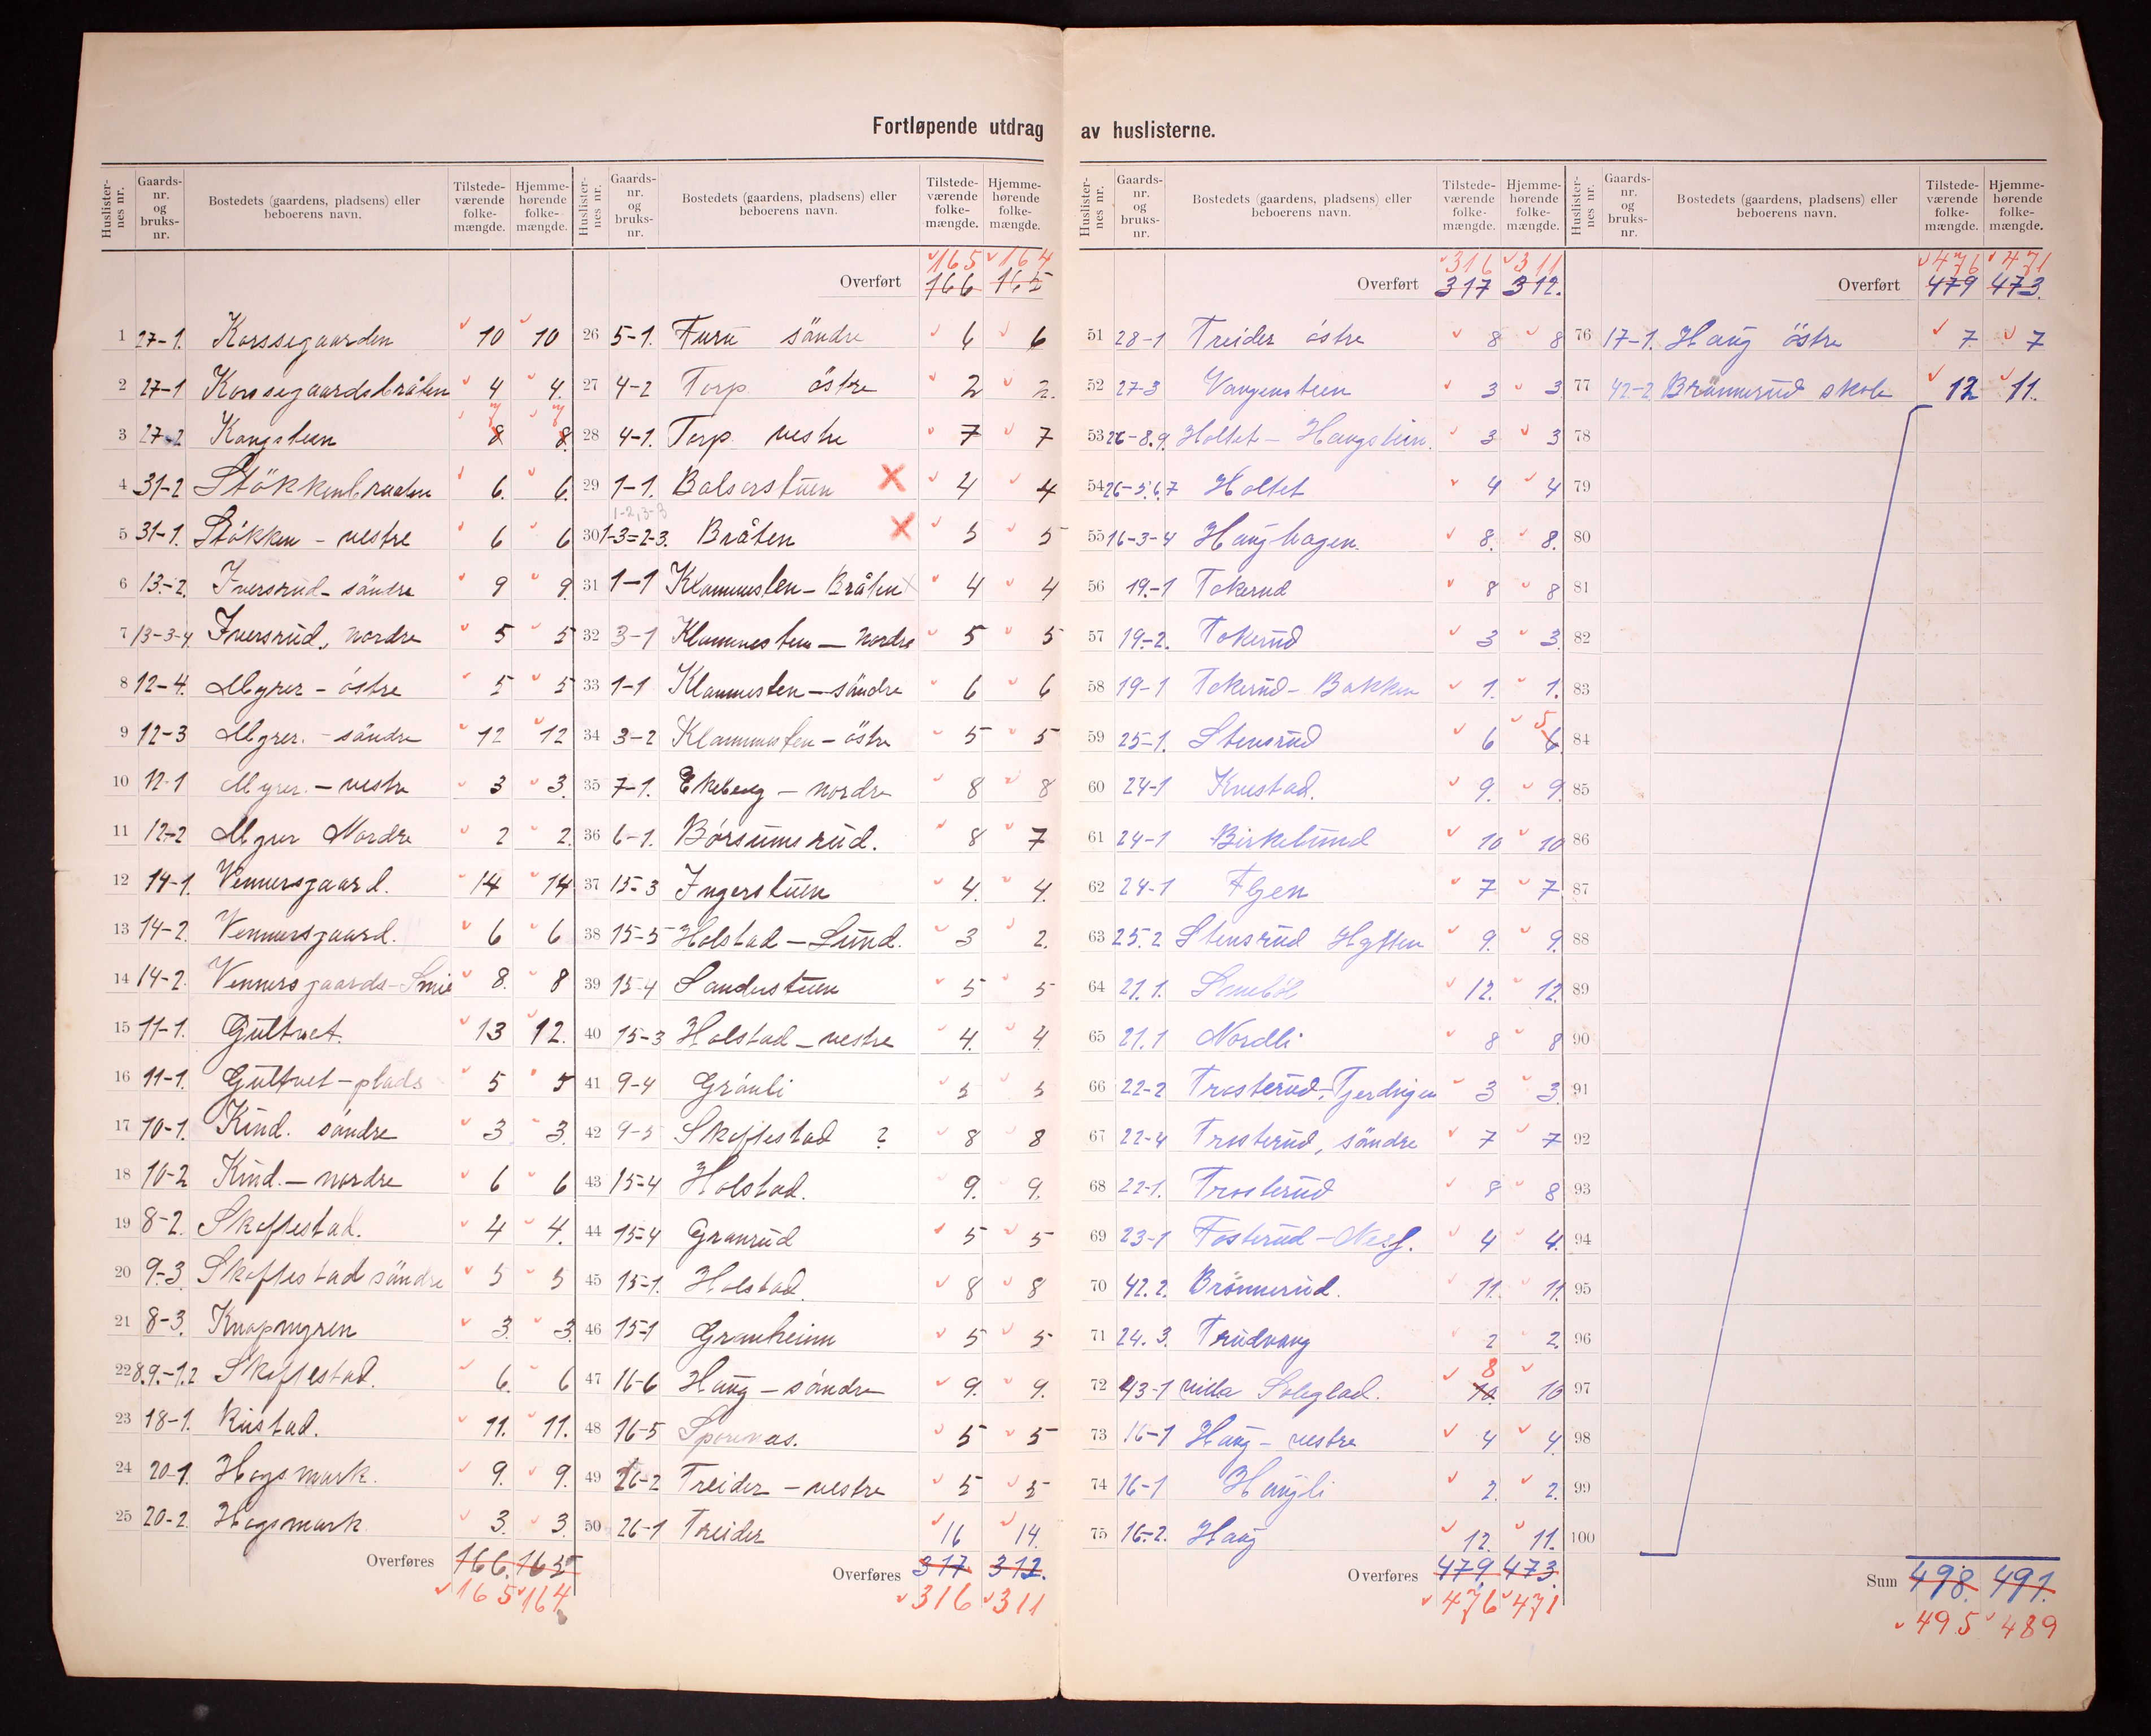 Fortløpende utdrag av huslisterne.
Huslister-nes nr. Gaards-nr. og bruks-nr. Bostedets (gaardens, pladsens) eller beboerens navn. Tilstede-værende folke-mængde. Hjemme-hørende folke-mængde.
1 27-1. Korssegaarden 10 10
2 27-1 Korssegaardsbråten 4 4.
3 27-2 Kongsteen 8 7 8. 7
4 31-2 Stökkenbraaten 6. 6.
5 31-1. Stökken - vestre 6 6
6 13-2. Iversrud - söndre 9 9.
7 13-3-4. Iversrud, nordre 5 5
8 12-4. Myrer - östre 5 5
9 12-3 Myrer. - söndre 12 12
10 12-1 Myrer. - vestre 3 3.
11 12-2 Myrer Nordre 2 2.
12 14-1. Vennersgaard. 14 14
13 14-2. Vennersgaard. 6 6
14 14-2. Vennersgaards-Smie 8. 8
15 11-1. Gultvet. 13 12.
16 11-1. Gultvet - plads 5 5
17 10-1. Kind. söndre 3 3.
18 10-2 Kind. - nordre 6 6
19 8-2. Skoftestad. 4 4.
20 9-3. Skoftestad söndre 5 5
21 8-3. Knapmyren 3. 3.
22 8.9.-1.2 Skoftestad. 6. 6
23 18-1. Kustad. 11. 11.
24 20-1. Hogsmark. 9. 9.
25 20-2. Hogsmark 3. 3.
Overføres 166. 165
165 164
Huslister-nes nr. Gaards-nr. og bruks-nr. Bostedets (gaardens, pladsens) eller beboerens navn. Tilstede-værende folke-mængde. Hjemme-hørende folke-mængde.
165 164
Overført 166 165
26 5-1. Furu söndre 6 6
27 4-2 Torp östre 2 2.
28 4-1. Torp vestre 7 7
29 1-1. Bolserstuen X 4 4
1-2, 3-3
30 1-3=2-3. Bråten X 5 5
31 1-1 Klommesten - Bråten X 4 4
32 3-1 Klommesten - Nordre 5 5
33 1-1 Klommesten - söndre 6 6
34 3-2 Klommesten - östre 5 5
35 7-1. Ekeberg - nordre 8 8
36 6-1. Börsumsrud. 8 7
37 15-3 Ingerstuen 4. 4.
38 15-5 Holstad - Lund. 3 2.
39 15-4 Sanderstuen 5 5
40 15-3 Holstad - vestre 4. 4.
41 9-4 Grönli 5 5
42 9-5 Skoftestad ? 8 8
43 15-4 Holstad. 9. 9.
44 15-4 Granrud 5 5
45 15-1. Holstad. 8 8
46 15-1 Granheim 5 5
47 16-6 Haug - söndre 9. 9.
48 16-5 5 5
49 26-2 Treider - vestre 5 5
50 26-1 Treider 16 14.
Overføres 317 312.
316 311
Huslister-nes nr. Gaards-nr. og bruks-nr. Bostedets (gaardens, pladsens) eller beboerens navn. Tilstede-værende folke-mængde. Hjemme-hørende folke-mængde.
316 311
Overført 317 312.
51 28-1 Treider östre 8 8
52 27-3 Vangensteen 3 3
53 26-8.9. Holtet - Haugsteen. 3 3
54 26-5.6.7 Holtet 4 4
55 16-3-4 Haughagen. 8. 8.
56 19-1 Tokerud 8 8
57 19-2. Tokerud 3 3.
58 19-1 Tokerud - Bakken 1. 1.
59 25-1. Stensrud 6 6 5
60 24-1 Krustad. 9. 9.
61 24-1 Birkelund 10 10
62 24-1 7 7
63 25.2 Stensrud Hytten 9. 9.
64 21.1. 12. 12.
65 21.1 Nordli 8 8
66 22-2 Trosterud - 3 3.
67 22-4 Trosterud, söndre 7 7
68 22-1. Trosterud 8 8
69 23-1 Fosterud - 4 4.
70 42.2. Brönnerud. 11. 11.
71 24.3. Trudvang 2 2.
72 43-1 Villa Soleglad. 10. 8 10
73 16-1 Haug - vestre 4 4.
74 16-1 Haugli 2. 2.
75 16-2. Haug 12. 11.
Overføres 479. 473.
476 471
Huslister-nes nr. Gaards-nr. og bruks-nr. Bostedets (gaardens, pladsens) eller beboerens navn. Tilstede-værende folke-mængde. Hjemme-hørende folke-mængde.
476 471
Overført 479 473.
76 17-1. Haug östre 7 7
77 42-2 Brönnerud skole 12 11.
78
79
80
81
82
83
84
85
86
87
88
89
90
91
92
93
94
95
96
97
98
99
100
Sum 498. 491.
495 489